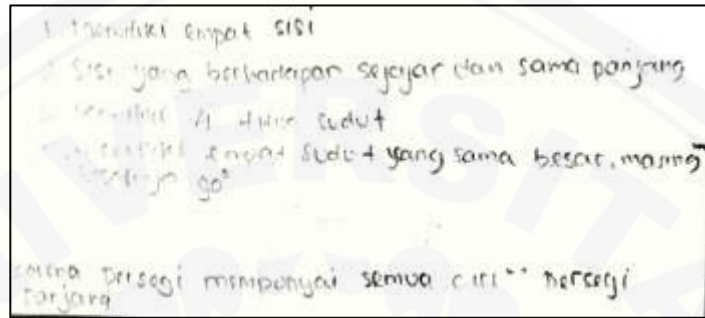 1. Memiliki empat sisi
2. Sisi yang berhadapan sejajar dan sama panjang
memiliki 4 titik sudut
memiliki empat sudut yang sama besar, masing"
90°
karena persegi mempunyai semua ciri" persegi
panjang